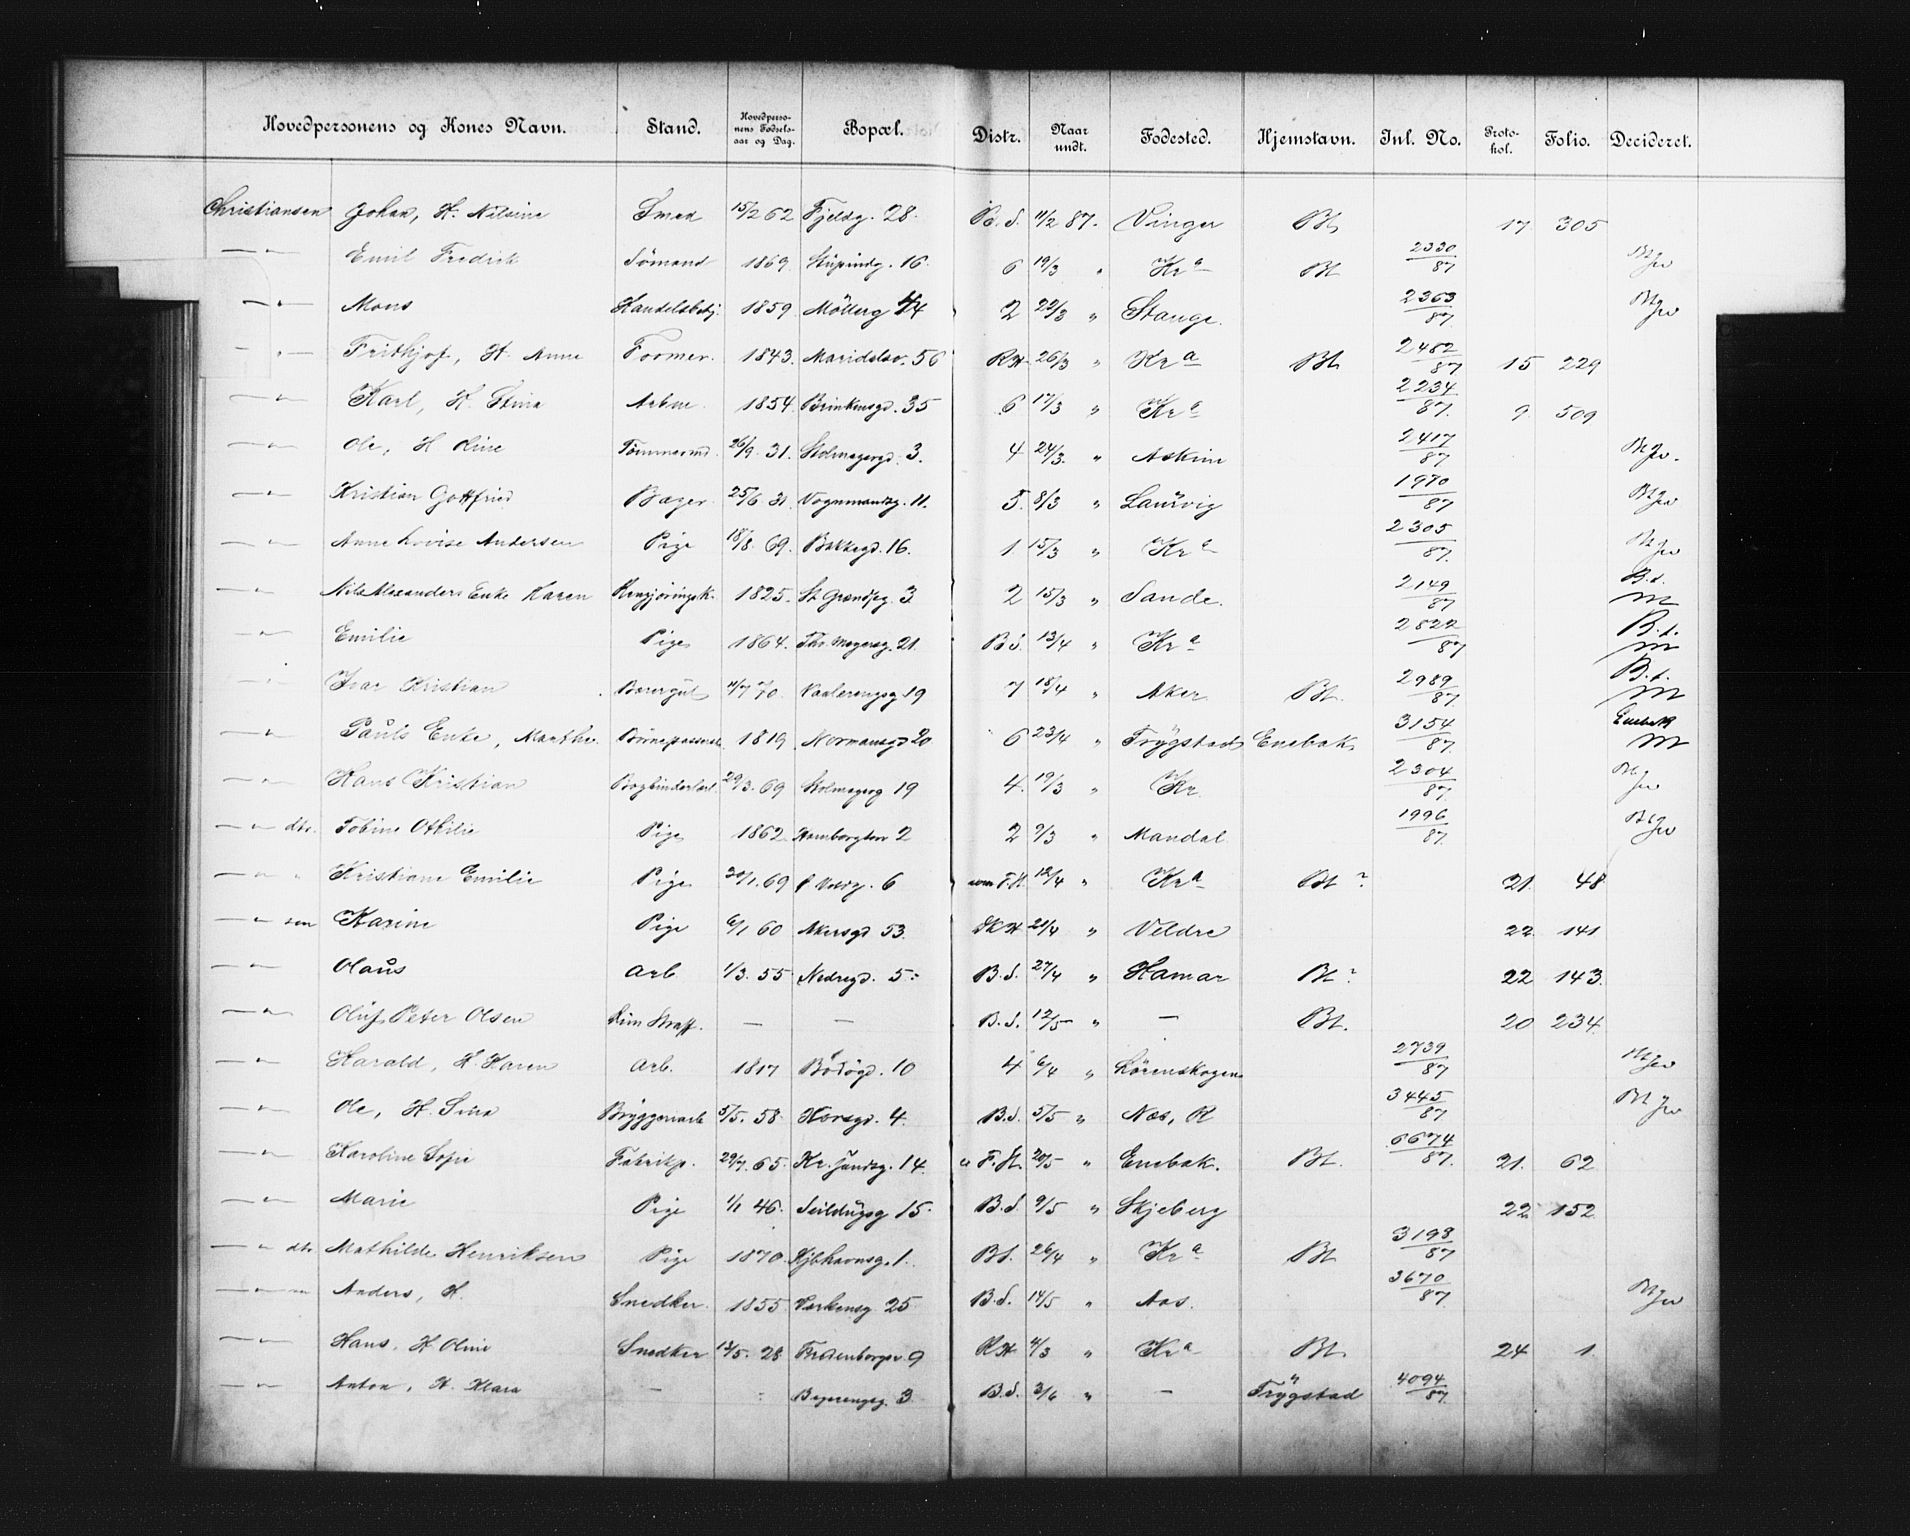 Hovedpersonens og Kones Navn. Stand. Hovedpersonens Fødselsaar og Dag. Bopæl. Distr. Naar undt. Fødested. Hjemstavn. Inl. No. Protokol. Folio. Decideret.
Christiansen Johan, H. Nilsine Smed 15/2 62 Fjeldg. 28. B. S. 11/2 87. Vinger Bt 17 305
— " — Emil Fredrik Sømand 1869. 16. 6 19/3 " Kra Bt 2330/87
— " — Mons Handelsbetj. 1859. Møllerg 44 2 22/3 " Stange. 2363/87
— " — Frithjof, H. Anne Former. 1843. Maridalsv. 56 RH. 26/3 " Kra Bt 2482/87 15 229
— " — Karl, H. Stina Arbm. 1854. Brinkensgd. 35 6 17/3 " Kra 2234/87. 9 509
— " — Ole, H Oline Tømmermd. 26/9. 31. Holmagergd. 3. 4 24/3. " Askim 2417/87
— " — Kristian Gottfried Bager. 25/6 31. Vognmandsg. 11. 5. 8/3 " Laurvig 1970/87
— " — Anne Lovise Andersen Pige 18/8. 69. Bakkegd. 16. 1 15/3 " Kra 2305/87.
— " — Nils Alexanders Enke Karen Rengjøringsk. 1825. St Grændseg. 3 2 15/3 " Sande. 2149/87 B.s. M
— " — Emilie Pige 1864. Ths. Meyersg. 21. B S. 13/4 " Kra 2822/87 B.s. M
— " — Ivar Kristian 11/7 70. Vaalerengsg 19 7 18/4 " Aker Bt. 2989/87. B.s. M
— " — Pauls Enke, Marthe. 1819 Normansgd 20 6 23/4 " Trygstad Enebak 3154/87. Enebak M
— " — Hans Kristian Bogbinderlærl. 29/3. 69 Holmagerg 19 4. 19/3 " Kr. 2304/87.
— " — dtr. Tobine Othilie Pige 1862 2 2 9/3 " Mandal. 1996/87.
— " " Kristiane Emilie Pige 30/1. 69 6 F.H. 12/4 " Kra Bt ? 21. 48
— " — sen Karine Pige 6/1 60 Akersgd 53. 21/4 " Veldre 22. 141
— " — Olaus Arb 1/3. 55 Nedregd. 5: B.S. 27/4 " Hamar Bt ? 22 143.
— " — Oluf Peter Olsen — — B.S. 12/5 " — Bt. 20 234.
— " — Harald, H. Karen Arb. 1817 Bodøgd. 10 4 6/4 " Lørenskogen 2739/87
— " — Ole, H. Sina Bryggeriarb 5/5. 58. Korsgd. 4. B.S. 5/5 " Næs, R 3445/87
— " — Karoline Sofie Fabrikp. 29/7. 65. 14. " F.H. 20/5 " Enebak. Bt. 6674/87. 21. 62
— " — Marie Pige 1/1 46. Seildugsg 15. B.S. 9/5 " Skjeberg 22 152.
— " — dtr Mathilde Henriksen Pige 1870. Kjbhavnsg. 1. BS. 26/4 " Kra Bt 3198/87
— " — Anders, H. Snedker. 1855 25 B.S. 14/5 " Aas. 3670/87.
— " — Hans, H Oline Snedker 12/5. 28 Fredenborgv. 9 RH 4/3 " Kra Bt. 24 1.
— " — Anton, H. Klara — 3. B.S. 3/6 " — Trygstad 4094/87.